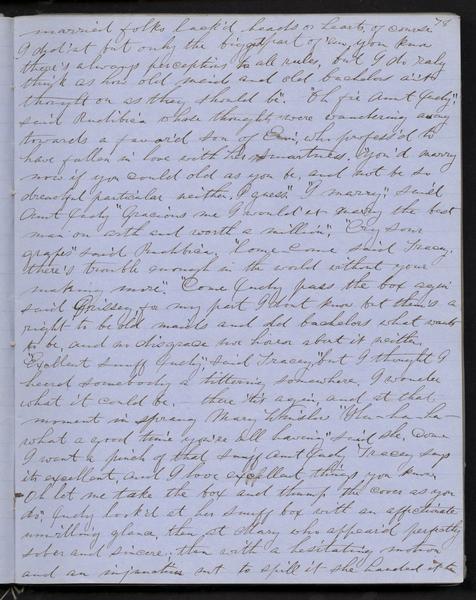 78
married folks lack'd heads or hearts, of course
I did'nt but only the biggest part of 'em, you know
there's always perceptions to all rules, but I do realy
think as how old maids and old bachelors aint
thought on as they should be". "Oh fie Aunt Judy",
said Ruthbia whose thoughts were wandering away
towards a favor'd son of who profess'd to
have fallen in love with her smartness. "You'd marry
now if you could old as you be, and not be so
dreadful particular neither, I guess". "I marry", said
Aunt Judy Gracious me I would'nt marry the best
man on arth and worth a million", "Cry sour
grapes" said Ruthbia, "Come come said Tracey,
there's trouble enough in the world without your
making more". "Come Judy pass the box agin
said Prissey, for my part I dont know but there's a
right to be old maids and old bachelors what wants
to be, and no disgrace nor horror about it neither.
"Excellent snuff Judy", said Tracey, "but I thought I
heerd somebody a tittering somewhere, I wonder
what it could be. there tis again, and at that
moment in sprang Mary Whisler "Wha-ha-ha-
what a good time you're all having" said she, Come
I want a pinch of that snuff Aunt Judy Tracey says
its excellent, and I love excellent things you know
Oh let me take the box and thump the cover as you
do, Judy look'd at her snuff box with an affectionate
unwilling glance, then at Mary who appear'd perfectly
sober and sincere; then with a hesitating motion
and an injunction not to spill it she handed it to